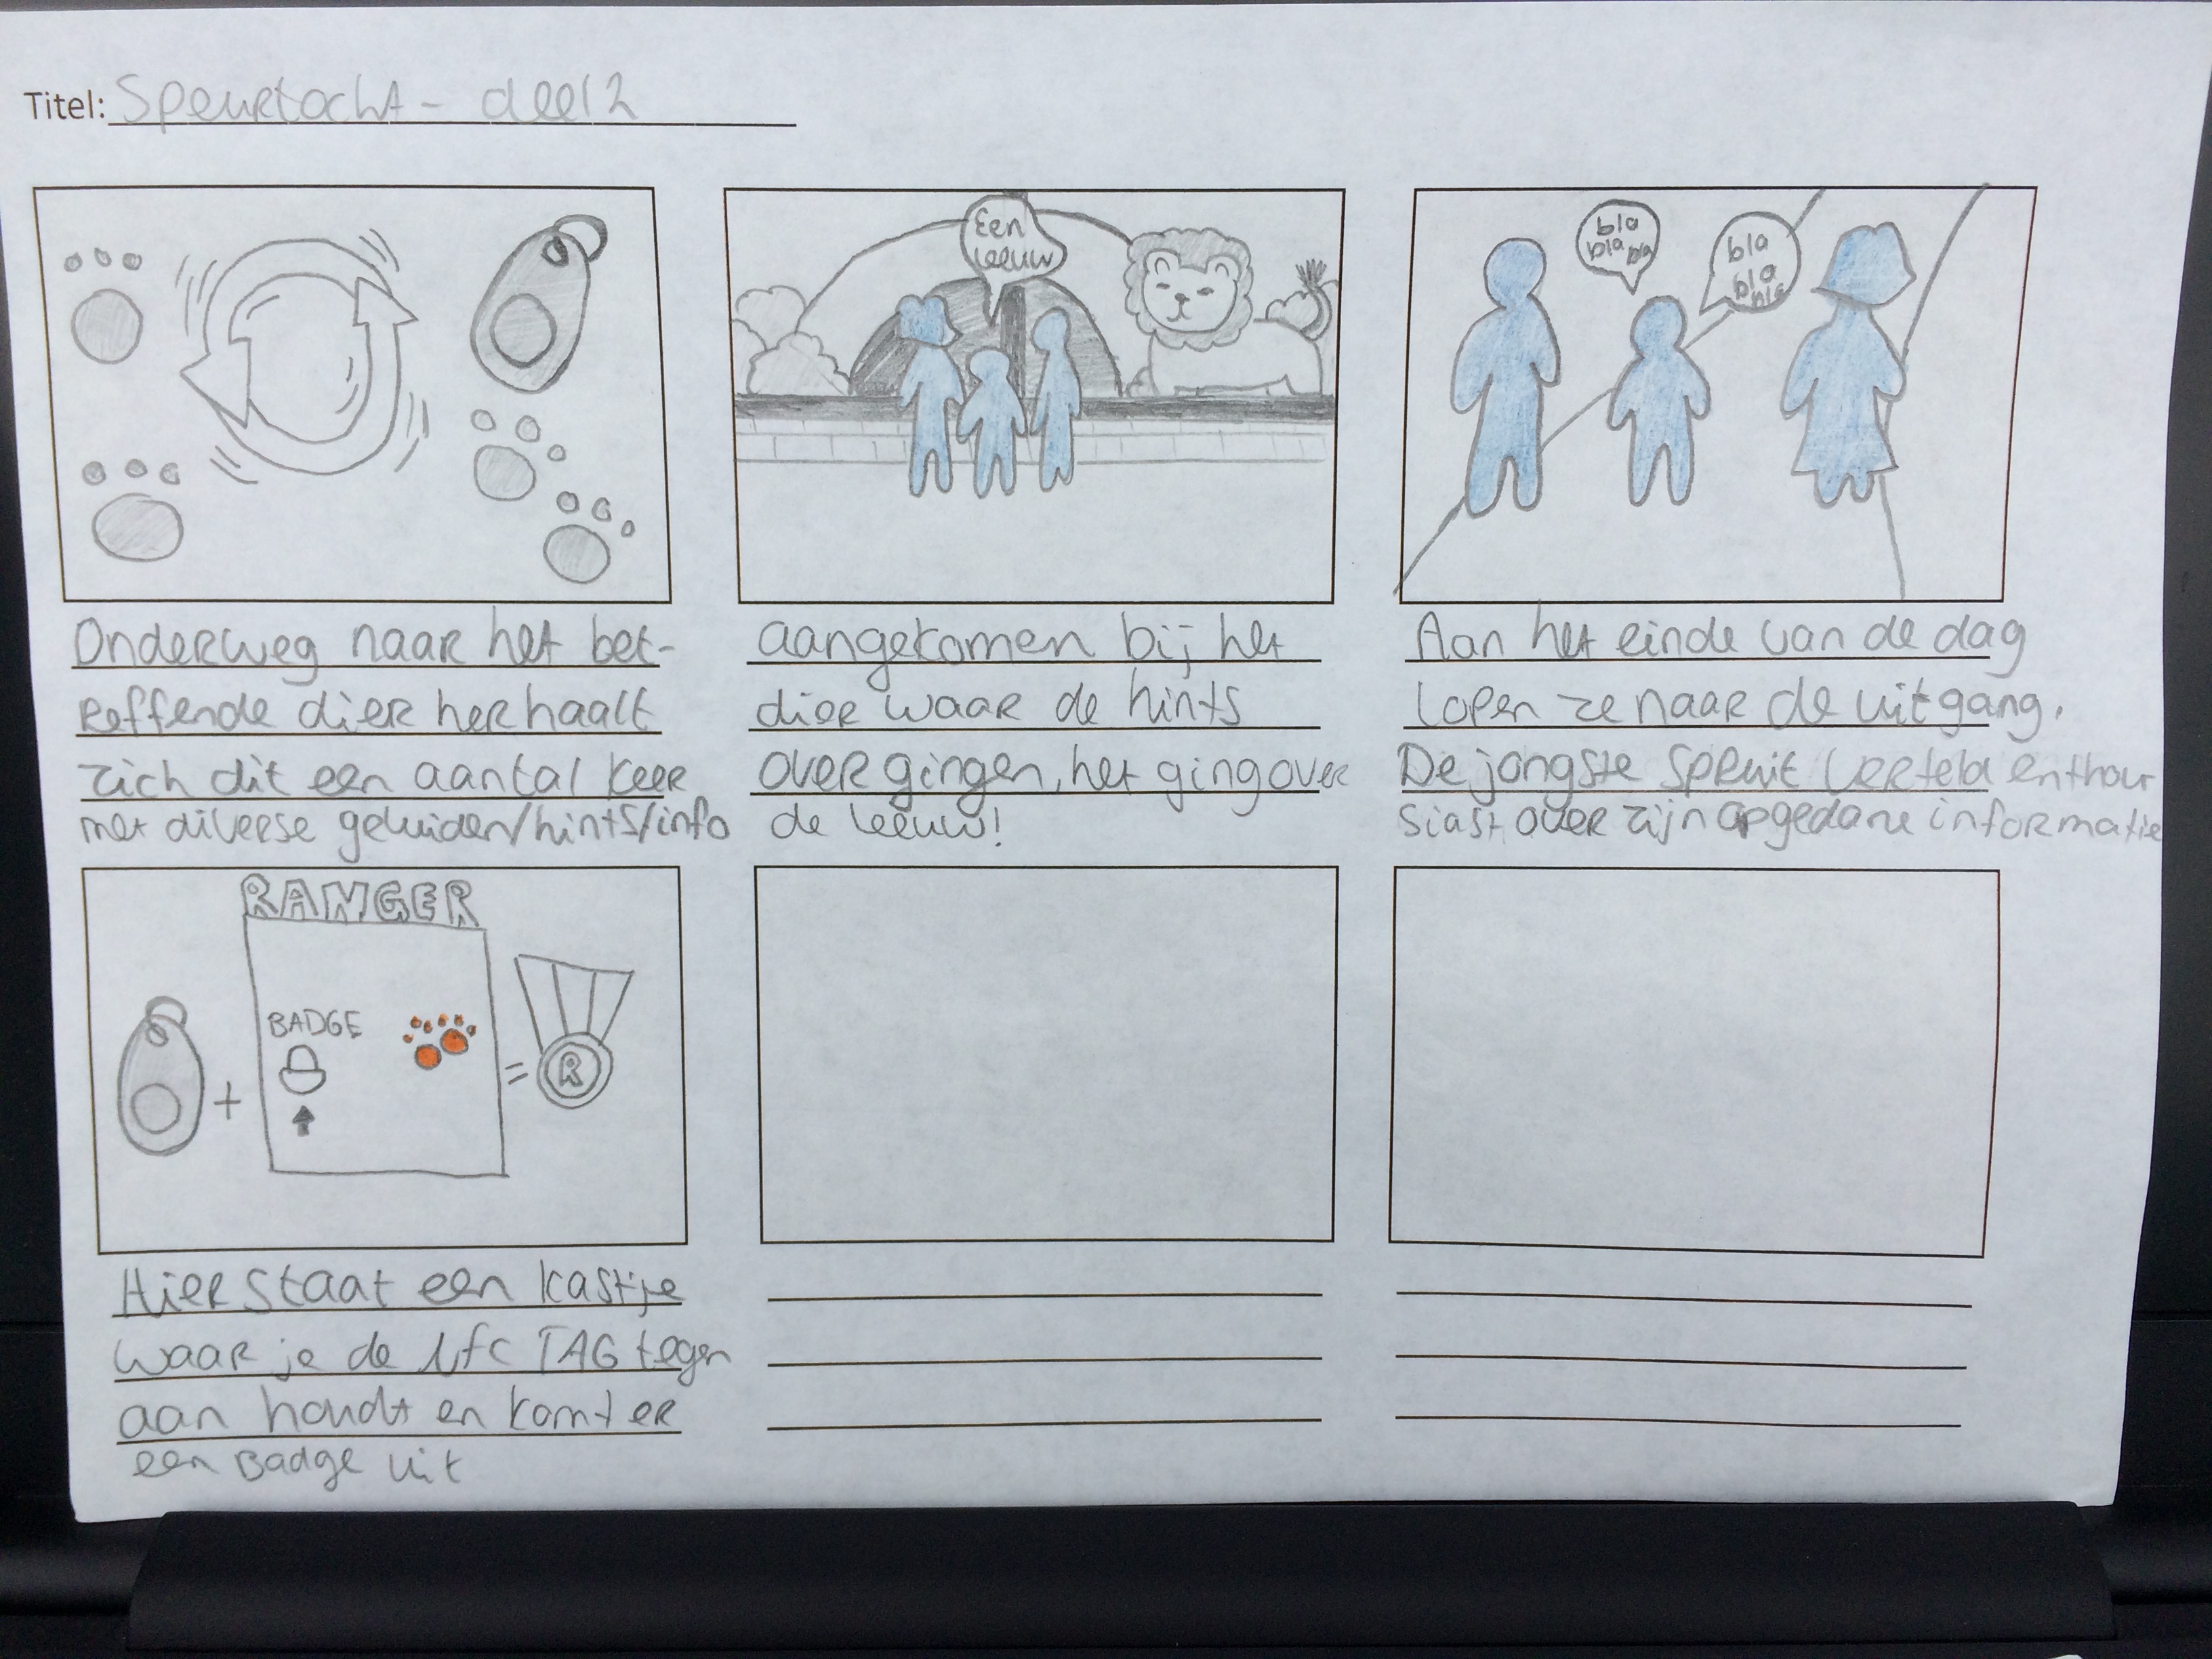 Titel: Speurtocht - deel 2
Een
leeuw
bla
bla bla
bla
bla
bla
Onderweg naar het bet-
reffende dier herhaalt
zich dit een aantal keer
met diverse geluiden/hints/info
aangekomen bij het
dier waar de hints
over gingen, het ging over
de leeuw!
Aan het einde van de dag
lopen ze naar de uitgang.
De jongste spruit verteld enthou
siast over zijn opgedane informatie
RANGER
BADGE
+
=
R
Hier staat een kastje
waar je de nfc TAG tegen
aan houdt en komt er
een Badge uit